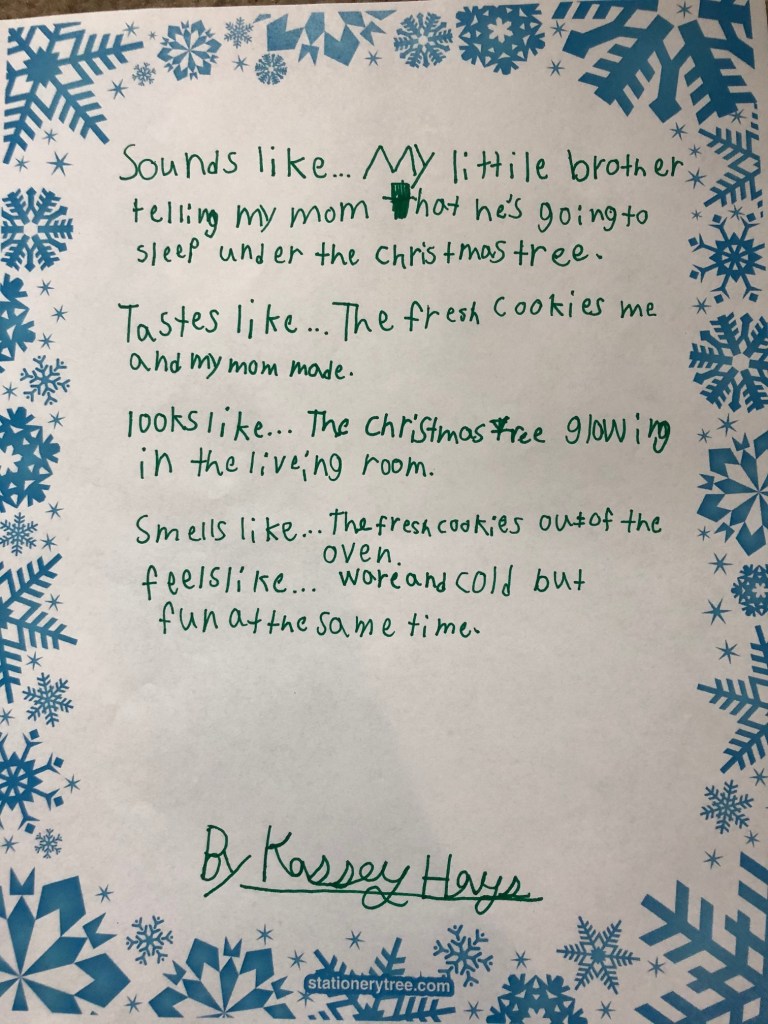 Sounds like... My littile brother
telling my mom that he's going to
sleep under the christmas tree.
Tastes like... The fresh cookies me
and my mom made.
looks like... The christmas tree glowing
in the liveing room.
Smells like... The fresh cookies out of the
oven.
feels like... ware and cold but
fun at the same time.
By Kassey Hays
stationerytree.com